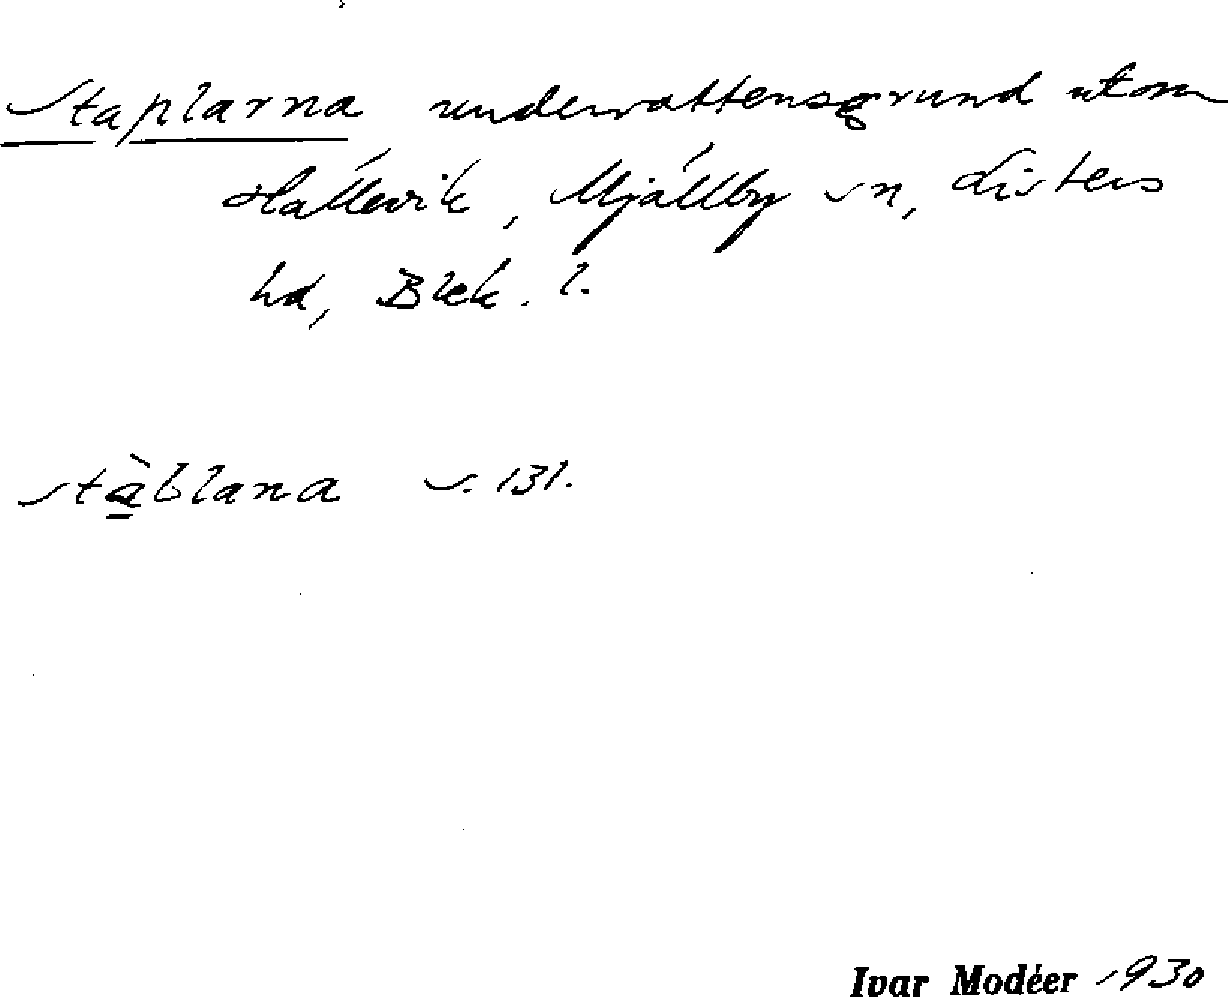 Staplarna undervattensgrund utom
Hällevik, Mjällby sn, Listers
hd, Blek. l.
stàblana s. 131.
Ivar Modéer 1930